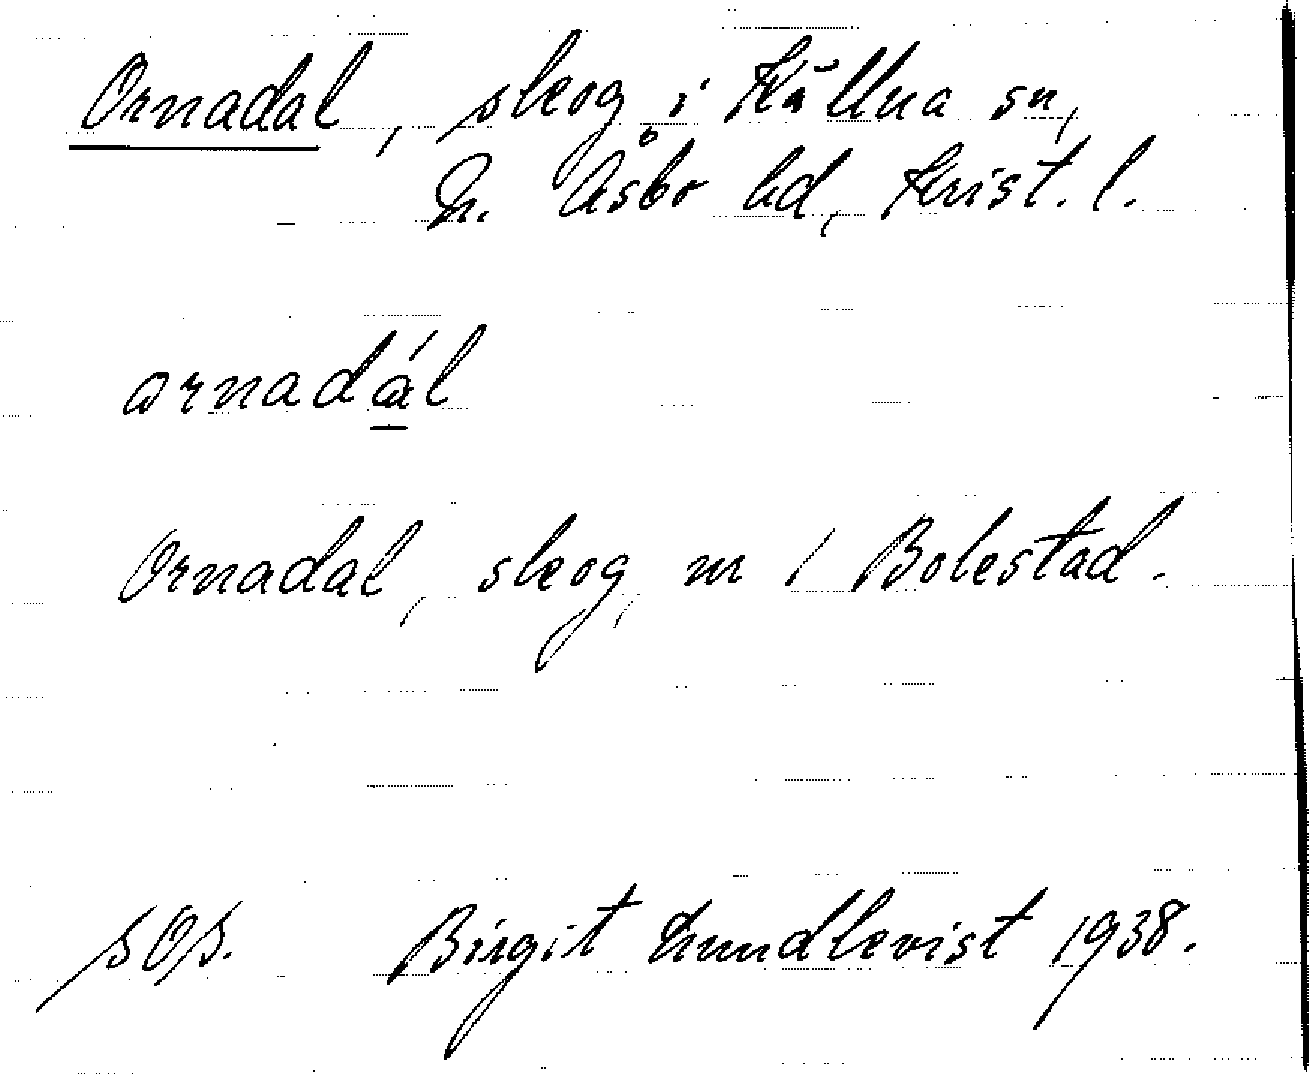 Ornadal, skog i Källna sn,
N. Åsbo hd, Krist. l.
ornadál
Ornadal, skog, nr 1 Bolestad.
SOS. Birgit Lundkvist 1938.